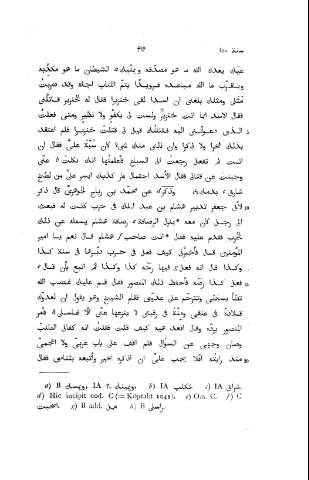 سنة ١٥٥ ٤١٢
عنك يعدك الله ما هو مصدّقه ويمنّيك الشيطان ما هو مكذّبه
ويقرب ما الله يباعده فرويدًا يتمّ الكتاب اجله وقد ضربتُ
مَثَلى ومثلك بلغنى ان اسدا لقى خنزيرا فقال له الخنزير قاتلنى
فقال الاسد انما انت خنزير ولستَ لى بكفو ولا نظير ومتى فعلتُ
الذى دعوتنى اليه فقتلتك قيل لى قتلت خنزيرا فلم اعتقد
بذلك فخرا ولا ذكرا وان نالنى منك شىء كان سُبّة علىّ فقال ان
انت لم تفعل رجعتُ الى السباع فأعلمتها انك نكلتَ عنّى
وجبنت عن قتالى فقال الاسد احتمال عار كذبك ايسر علىّ من لطخ
شاربى بدمك، وذكر عن محمّد بن رياح الجوهرى قال ذكر
لأبى جعفر تدبير هشام بن عبد الملك فى حرب كانت له فبعث
الى رجل كان معه ينزل الرصافة رصافة هشام يسئله عن ذلك
الحرب فقدم عليه فقال انت صاحب هشام قال نعم يا امير
المؤمنين قال فأخبرنى كيف فعل فى حرب دبّرها فى سنة كذا
وكذا قال انه فعل فيها رحمه كذا وكذا ثم اتبع بأن قال
فعل كذا رضّه فأحفظ ذلك المنصور فقال قم عليك غضب الله
تطأ بساطى وتترحّم على عدوّى فقام الشيخ وهو يقول ان لعدوّك
قلادة فى عنقى ومِنّة فى رقبتى لا ينزعها عنّى الّا غاسلى فأمر
المنصور بردّه وقال اقعد هيه كيف قلت فقلتُ انه كفانى الطلب
وصان وجهى عن السؤال فلم اقف على باب عربى ولا اعجمى
منذ رايته افلا يجب علىّ ان اذكره بخير وأتبعه بثنائى فقال
a) B ويعدك, IA ويمنك. b) IA تنكلت. c) IA شرابى.
d) Hic incipit cod. C (= Köprülü 1041). e) Om. C. f) C
g) B add. h) B